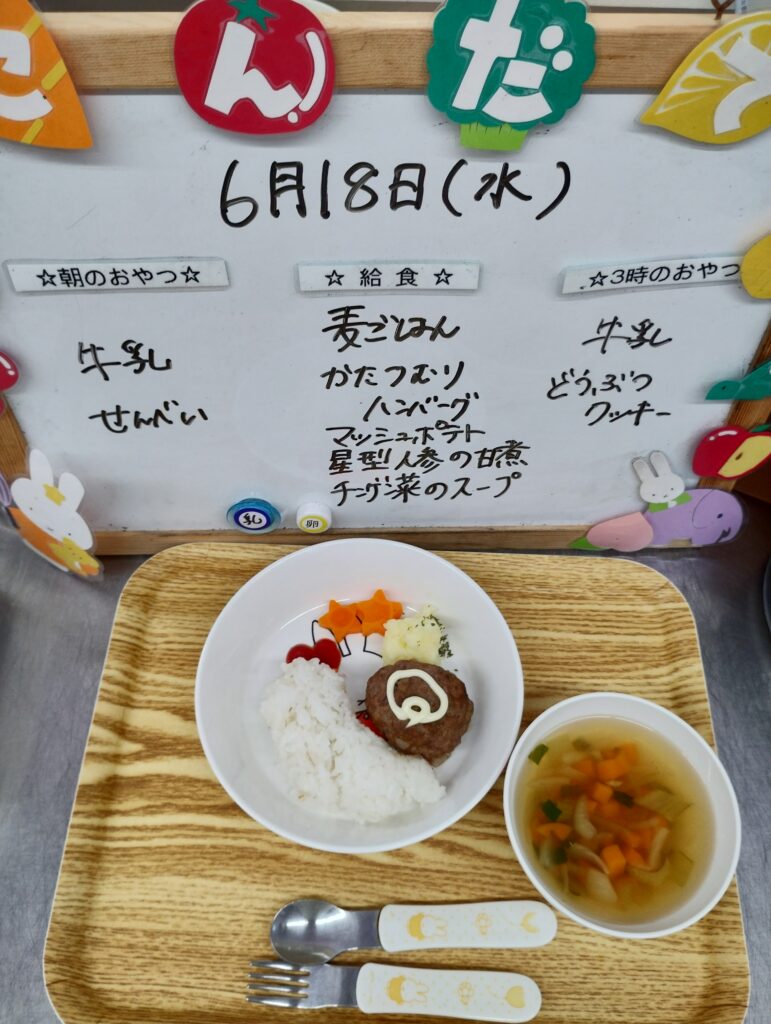 こんだて
6月18日(水)
☆朝のおやつ☆
牛乳
せんべい
☆ 給 食 ☆
麦ごはん
かたつむり
ハンバーグ
マッシュポテト
星型人参の甘煮
チンゲン菜のスープ
☆3時のおやつ
牛乳
どうぶつ
クッキー
乳
卵